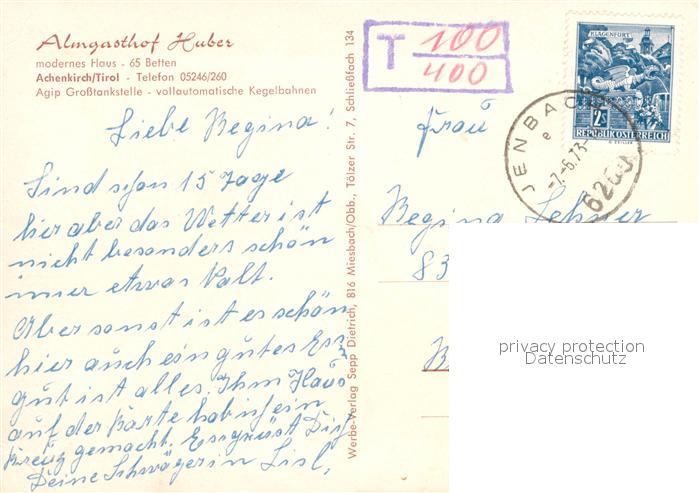 Almgasthof Huber
modernes Haus - 65 Betten
Achenkirch/Tirol - Telefon 05246/260
Agip Großtankstelle - vollautomatische Kegelbahnen
Liebe Regina!
Sind schon 15 Tage
hier aber das Wetter ist
nicht besonders schön
imer etwas Kalt.
Aber sonst ist es schön
hier auch ein gutes Ess
gut ist alles. Ihm Haus
auf der Karte hab ich ein
Kreuz gemacht. Es grüsst Dich
Deine Schwägerin Lisl,
Werbe-Verlag Sepp Dietrich, 816 Miesbach/Obb., Tölzer Str. 7, Schließfach 134
T 100
400
KLAGENFURT
2S
REPUBLIK ÖSTERREICH
JENBACH
e
-7.-6.73-
6200
Frau
Regina Lehner
83
privacy protection
Datenschutz